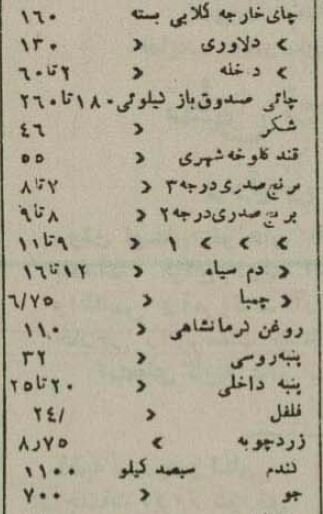 چای خارجه کلابی بسته ۱۶۰
> دلاوری > ۱۳۰
> دخله > ۲ تا ۶۰
چائی صندوق باز کیلوئی ۱۸۰ تا ۲۶۰
شکر > ۴۶
قند کلوخه شهری > ۵۵
برنج صدری درجه ۳ > ۷ تا ۸
برنج صدری درجه ۲ > ۸ تا ۹
> > > ۱ > ۹ تا ۱۱
> دم سیاه > ۱۲ تا ۱۶
> چمپا > ۶/۷۵
روغن کرمانشاهی > ۱۱۰
پنبه روسی > ۳۲
پنبه داخلی > ۲۰ تا ۲۵
فلفل > ۲۴/
زردچوبه > ۸٫۷۵
گندم سیصد کیلو ۱۱۰۰
جو > ۷۰۰